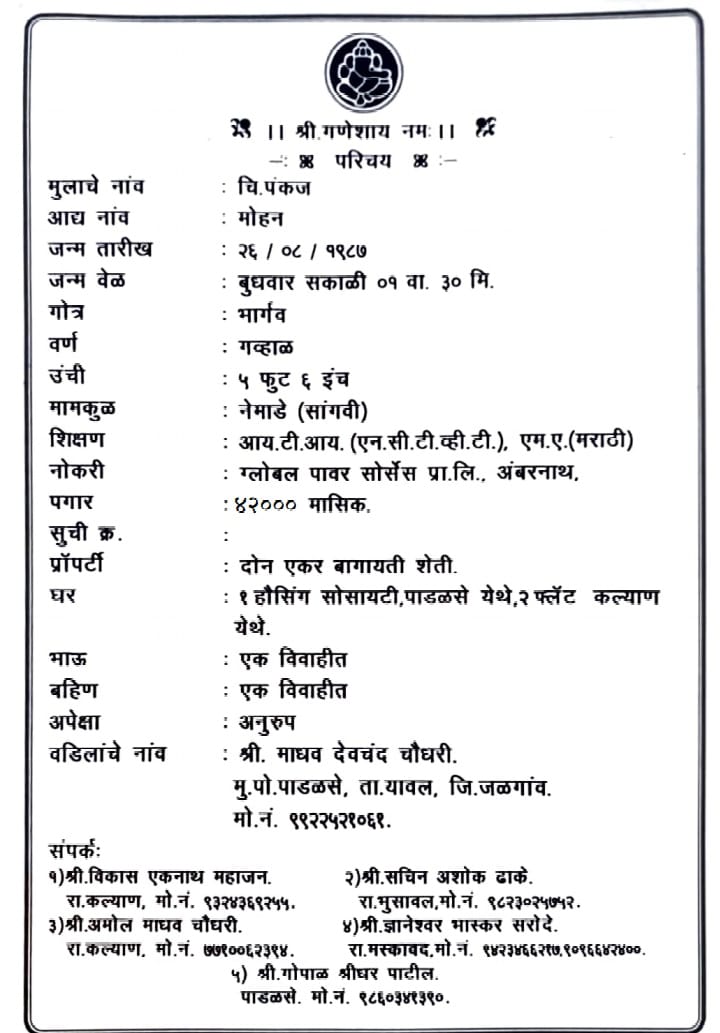 ।। श्री.गणेशाय नमः।।
-: परिचय :-
मुलाचे नांव : चि.पंकज
आद्य नांव : मोहन
जन्म तारीख : २६ / ०८ / १९८७
जन्म वेळ : बुधवार सकाळी ०१ वा. ३० मि.
गोत्र : भार्गव
वर्ण : गव्हाळ
उंची : ५ फुट ६ इंच
मामकुळ : नेमाडे (सांगवी)
शिक्षण : आय.टी.आय. (एन.सी.टी.व्ही.टी.), एम.ए.(मराठी)
नोकरी : ग्लोबल पावर सोर्सेस प्रा.लि., अंबरनाथ,
पगार : ४२००० मासिक.
सुची क्र. :
प्रॉपर्टी : दोन एकर बागायती शेती.
घर : १ हौसिंग सोसायटी,पाडळसे येथे,२ फ्लॅट कल्याण
येथे.
भाऊ : एक विवाहीत
बहिण : एक विवाहीत
अपेक्षा : अनुरुप
वडिलांचे नांव : श्री. माधव देवचंद चौधरी.
मु.पो.पाडळसे, ता.यावल, जि.जळगांव.
मो.नं. ९९२२५२१०६१.
संपर्कः
१)श्री.विकास एकनाथ महाजन. २)श्री.सचिन अशोक ढाके.
रा.कल्याण, मो.नं. ९३२४३६९२५५. रा.भुसावल,मो.नं. ९८२३०२५७५२.
३)श्री.अमोल माधव चौधरी. ४)श्री.ज्ञानेश्वर भास्कर सरोदे.
रा.कल्याण, मो.नं. ७७१००६२३१४. रा.मस्कावद,मो.नं. ९४२३४६६२१७,९०९६६४२४००.
५) श्री.गोपाळ श्रीधर पाटील.
पाडळसे. मो.नं. ९८६०३४१३९०.